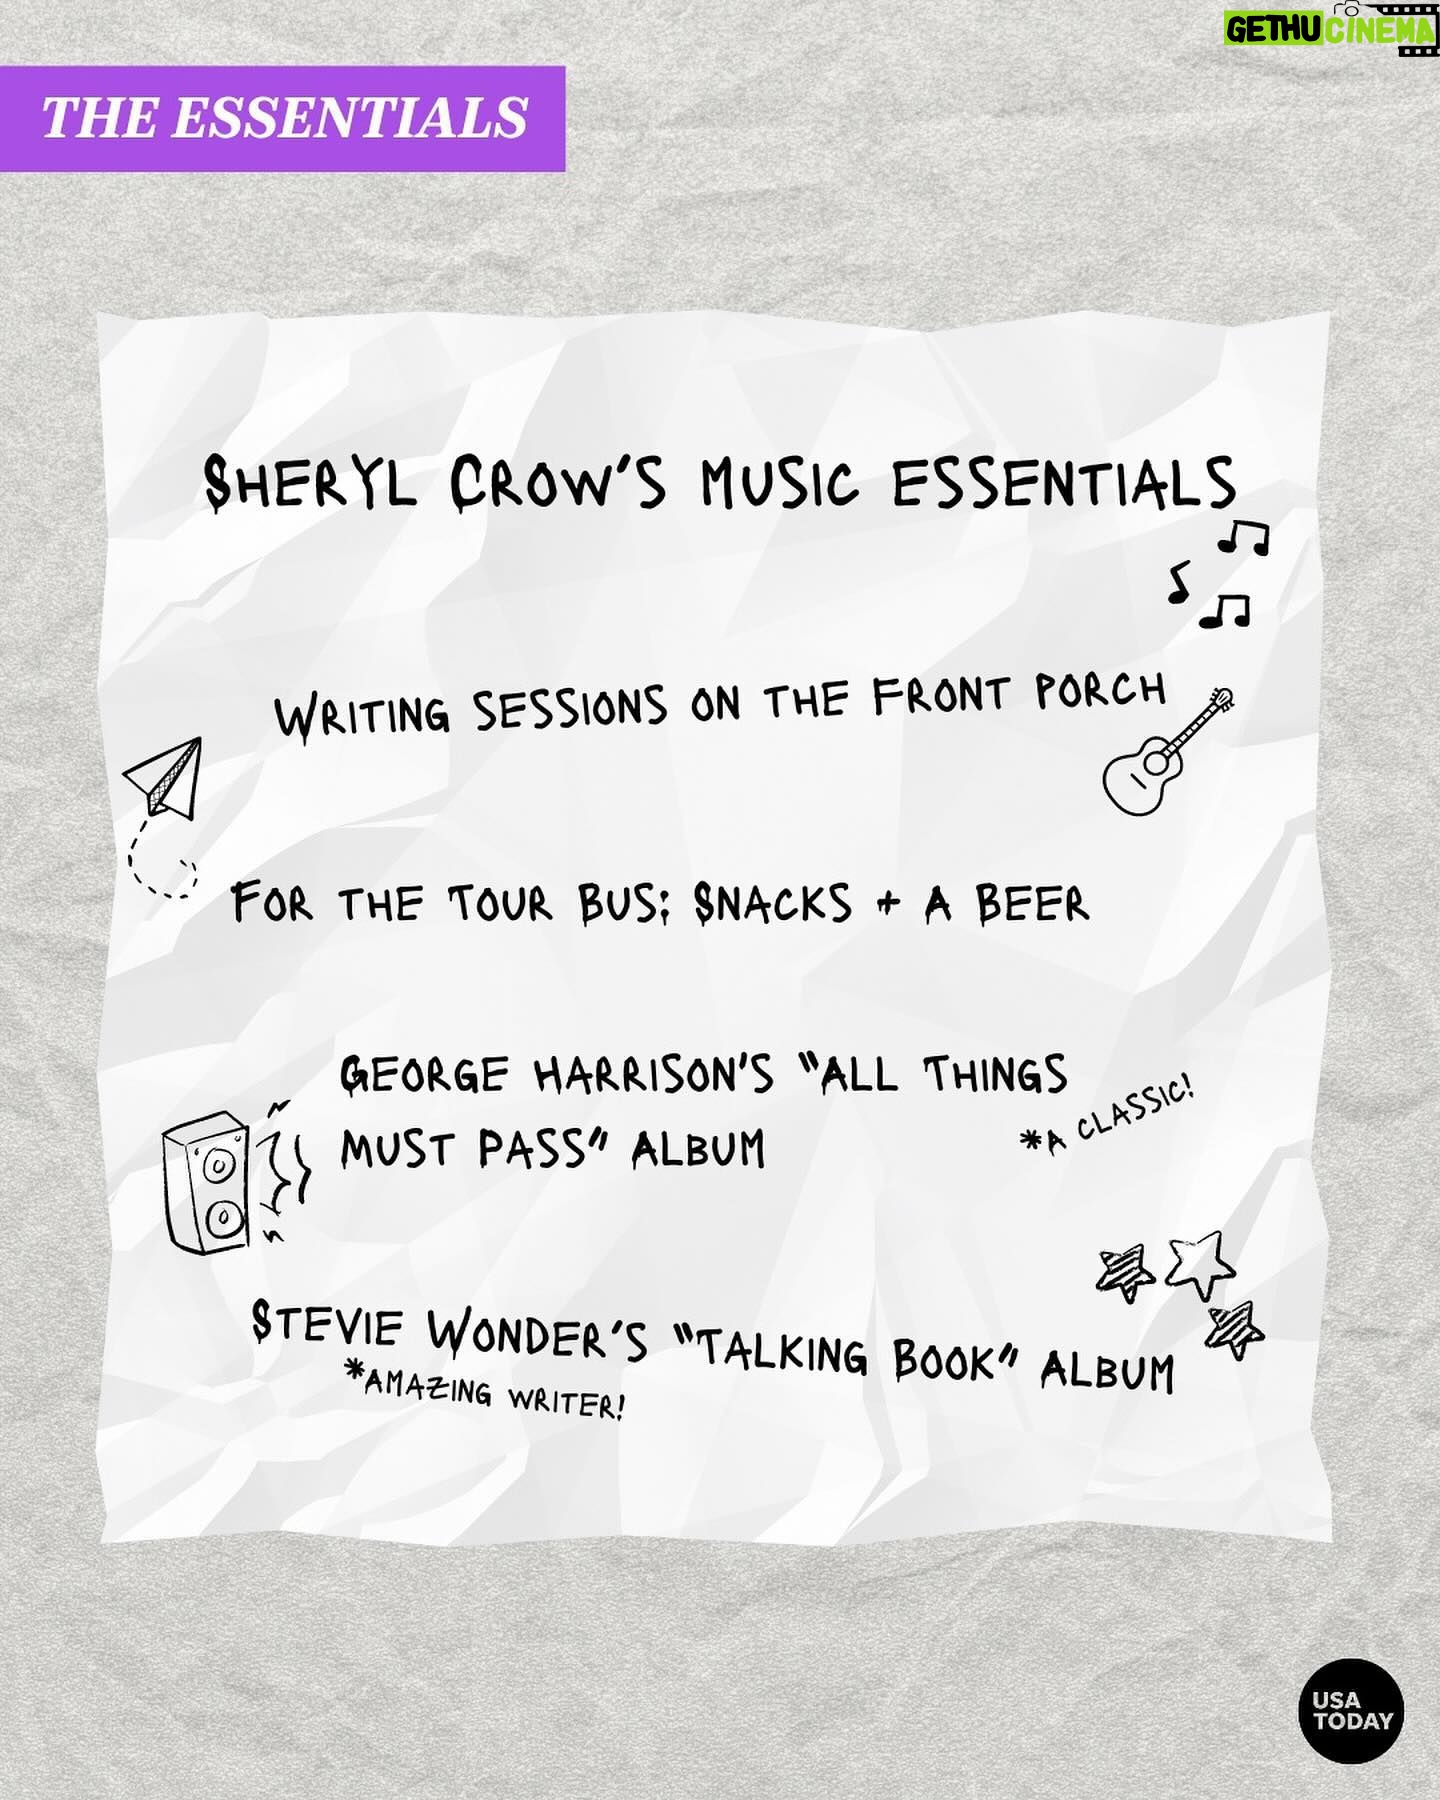 GETHUCINEMA
THE ESSENTIALS
SHERYL CROW'S MUSIC ESSENTIALS
WRITING SESSIONS ON THE FRONT PORCH
FOR THE TOUR BUS: SNACKS + A BEER
GEORGE HARRISON'S "ALL THINGS
MUST PASS" ALBUM
*A CLASSIC!
STEVIE WONDER'S "TALKING BOOK" ALBUM
*AMAZING WRITER!
USA
TODAY